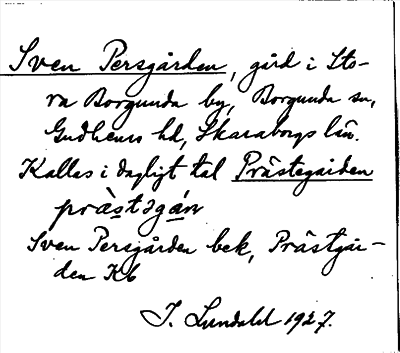 Sven Persgården, gård i Sto-
ra Borgunda by, Borgunda sn,
Gudhems hd, Skaraborgs län.
Kallas i dagligt tal Prästegården
prästəgán
Sven Persgården bek, Prästgår-
den Kb
J. Lundahl 1927.